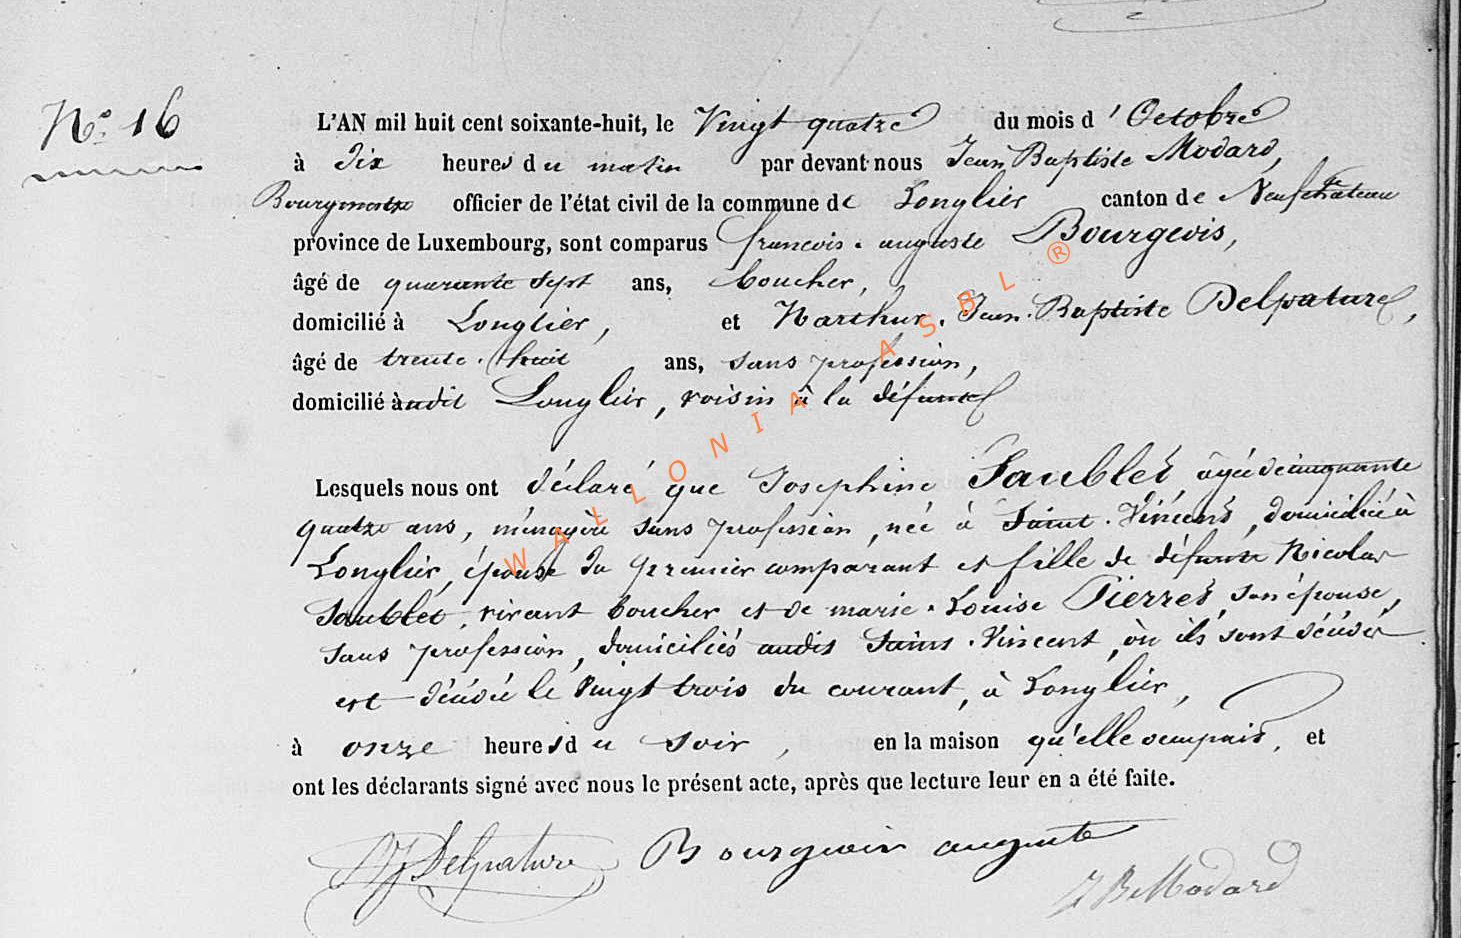 N° 16
L'AN mil huit cent soixante-huit, le Vingt quatre du mois d' Octobre
à Dix heures du matin par devant nous Jean Baptiste Modard,
Bourgmestre officier de l'état civil de la commune de Longlier canton de Neufchateau
province de Luxembourg, sont comparus francois. auguste Bourgeois,
âgé de quarante sept ans, boucher,
domicilié à Longlier, et Narthur. Jean. Baptiste Delpature,
âgé de trente. huit ans, sans profession,
domicilié àudit Longlier, voisin à la défunte
Lesquels nous ont déclaré que Josephine Saublet âgée de cinquante
quatre ans, ménagère sans profession, née à Saint. Vincent, domiciliée à
Longlier, épouse du premier comparant et fille de défunte Nicolas
Saublet, vivant boucher et de marie. Louise Pierret, son épouse,
sans profession, domiciliés audit Saint. Vincent, où ils sont décédés
est décédée le Vingt trois du courant, à Longlier,
à onze heures du soir, en la maison qu'elle occupait, et
ont les déclarants signé avec nous le présent acte, après que lecture leur en a été faite.
Delpature Bourgeois auguste
J B Modard
WALLONIA ASBL ®